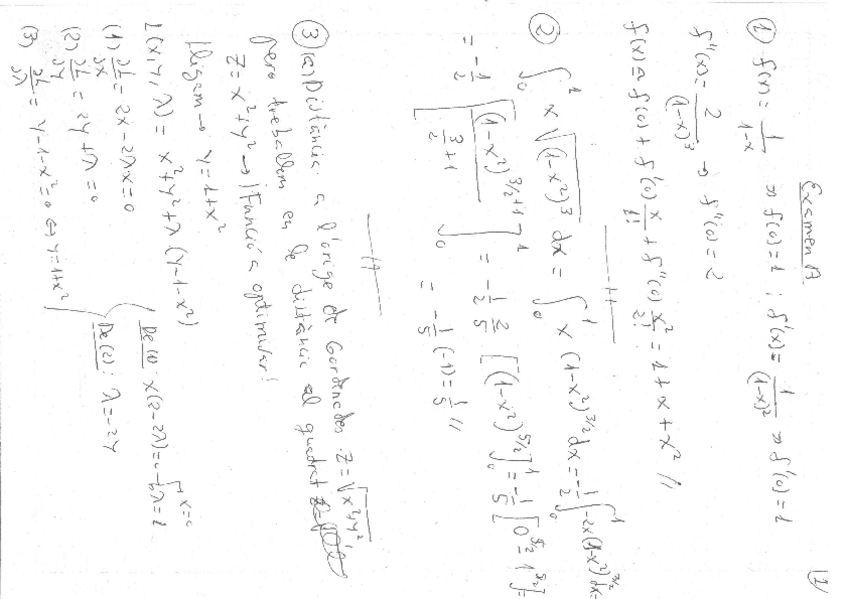 Examen A
1
① f(x) = 1/(1-x) ⇒ f(0) = 1 ; f'(x) = 1/(1-x)² ⇒ f'(0) = 1
f''(x) = 2/(1-x)³ → f''(0) = 2
f(x) ≃ f(0) + f'(0) x/1! + f''(0) x²/2! = 1 + x + x² //
② ∫₀¹ x √(1-x²)³ dx = ∫₀¹ x (1-x²)^(3/2) dx = -1/2 ∫₀¹ -2x (1-x²)^(3/2) dx =
= -1/2 [(1-x²)^(3/2+1) / (3/2+1)]₀¹ = -1/2 2/5 [(1-x²)^(5/2)]₀¹ = -1/5 [0^(5/2) - 1^(5/2)] =
= -1/5 (-1) = 1/5 //
③ (a) Distància a l'orige de Cordenades. z = √(x²+y²),
però treballem en la distància al quadrat
z = x² + y² → ¡Funció a optimitzar!
lligam → y = 1+x²
L(x, y, λ) = x² + y² + λ (y - 1 - x²)
(1) ∂L/∂x = 2x - 2λx = 0
De (1): x(2-2λ) = 0 → x = 0
λ = 1
(2) ∂L/∂y = 2y + λ = 0
De (2): λ = -2y
(3) ∂L/∂λ = y - 1 - x² = 0 ⇔ y = 1+x²